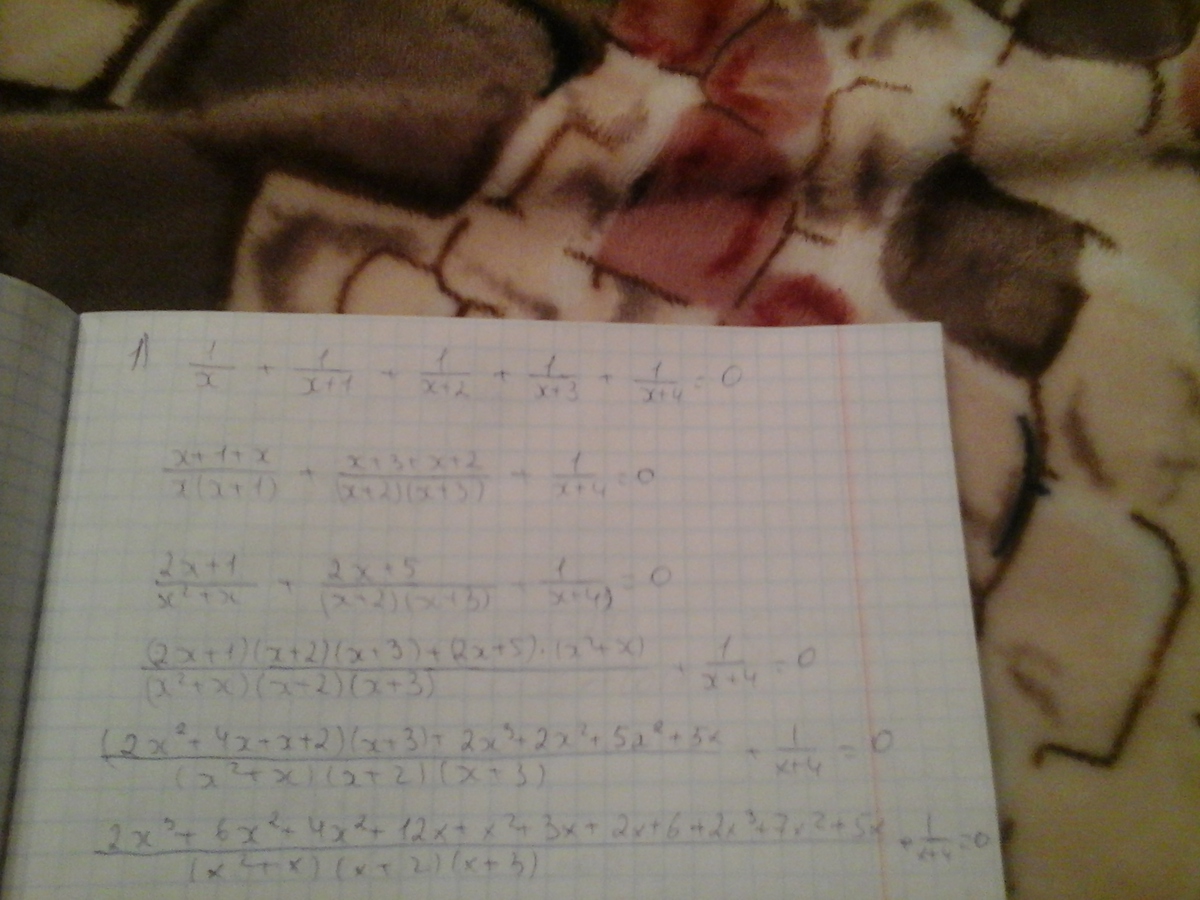 1) 1/x + 1/(x+1) + 1/(x+2) + 1/(x+3) + 1/(x+4) = 0
(x+1+x)/(x(x+1)) + (x+3+x+2)/((x+2)(x+3)) + 1/(x+4) = 0
(2x+1)/(x²+x) + (2x+5)/((x+2)(x+3)) + 1/(x+4) = 0
((2x+1)(x+2)(x+3)+(2x+5)·(x²+x))/((x²+x)(x+2)(x+3)) + 1/(x+4) = 0
((2x²+4x+x+2)(x+3)+2x³+2x²+5x²+5x)/((x²+x)(x+2)(x+3)) + 1/(x+4) = 0
(2x³+6x²+4x²+12x+x²+3x+2x+6+2x³+7x²+5x)/((x²+x)(x+2)(x+3)) + 1/(x+4) = 0